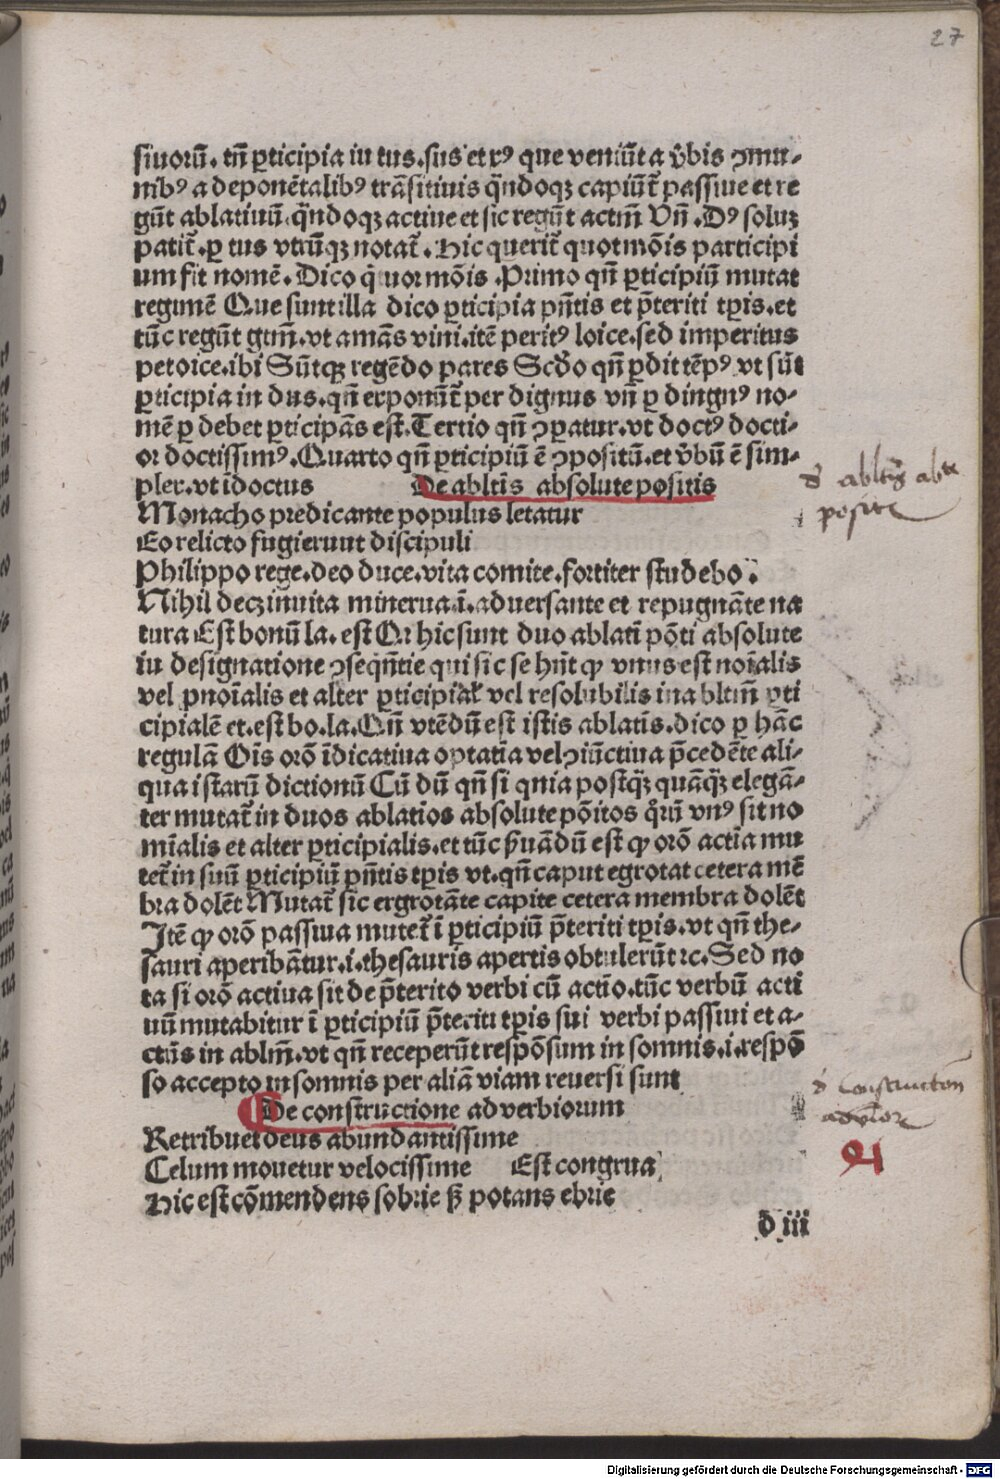 27
siuorū. tn̄ ꝑticipia in tus.sus et xꝰ que veniūt a v̄bis ꝯmu-
nibꝰ a deponētalibꝰ trāsitiuis qn̄doqꝫ capiūt̄ passiue et re
gūt ablatiuū qn̄doqꝫ actiue et sic regūt actm̄ Vn̄ . Dꝰ soluꝫ
patit̄.ꝑ tus vtrūqꝫ notat̄. Hic querit̄ quot mōis participi
um fit nomē. Dico q̇tuor mōis .Primo qn̄ ꝑticipiū mutat
regimē Que sunt illa dico ꝑticipia pn̄tis et p̄teriti tp̄is.et
tūc regūt gtm̄.vt amās vini.itē peritꝰ loice.sed imperitus
petoice.ibi Sūtqꝫ regēdo pares Scd̄o qn̄ ꝑdit tēpꝰ vt sūt
ꝑticipia in dus.qn̄ exponūt̄ per dignus vn̄ ꝑ dingnꝰ no-
mē ꝑ debet ꝑticipās est.Tertio qn̄ ꝯꝑatur.vt doctꝰ docti-
or doctissimꝰ.Quarto qn̄ ꝑticipiū ē ꝯpositū.et v̄bū ē sim-
plex.vt īdoctus De abltis absolute positis
d̄ abltīs abte
posite
Monacho predicante populus letatur
Eo relicto fugierunt discipuli
Philippo rege.deo duce.vita comite.fortiter studebo.
Nihil decꝫ inuita minerua.ī.aduersante et repugnāte na
tura Est bonū la. est Qꝛ hic sunt duo ablati pōti absolute
in designatione ꝯseqn̄tie qui sic se hn̄t ꝙ vnus est noīalis
vel ꝓnoīalis et alter ꝑticipial̄ vel resolubilis in abltm̄ ꝑti
cipialē et.est bo.la.Qn̄ vtēdū est istis ablatīs.dico ꝑ hāc
regulā Oīs orō īdicatiua optatīa vel ꝯiūctiua p̄cedēte ali-
qua istarū dictionū Cū dū qn̄ si quia postqꝫ quāqꝫ elegā-
ter mutat̄ in duos ablatios absolute pōitos qrū vnꝰ sit no
mīalis et alter ꝑticipialis.et tūc ẜuādū est ꝙ orō actīa mu
tet̄ in suū ꝑticipiū pn̄tis tp̄is vt.qn̄ caput egrotat cetera mē
bra dolēt Mutat̄ sic ergrotāte capite cetera membra dolēt
Itē ꝙ orō passiua mutet̄ ī ꝑticipiū p̄teriti tp̄is.vt qn̄ the-
sauri aperibātur.i.thesauris apertis obtulerūt ⁊c.Sed no
ta si orō actiua sit de p̄terito verbi cū actiō.tūc verbū acti
uū mutabitur ī ꝑticipiū p̄teriti tp̄is sui verbi passiui et a-
ctūs in ablm̄.vt qn̄ receperūt respōsum in somnis.i.respō
so accepto in somnis per aliā viam reuersi sunt
De constructione aduerbiorum
d̄ Constructōn
adv̄bior
Retribuet deus abundantissime
Celum mouetur velocissime Est congrua
Hic est cōmendens sobrie ẜ potans ebrie
d iii
Digitalisierung gefördert durch die Deutsche Forschungsgemeinschaft - DFG